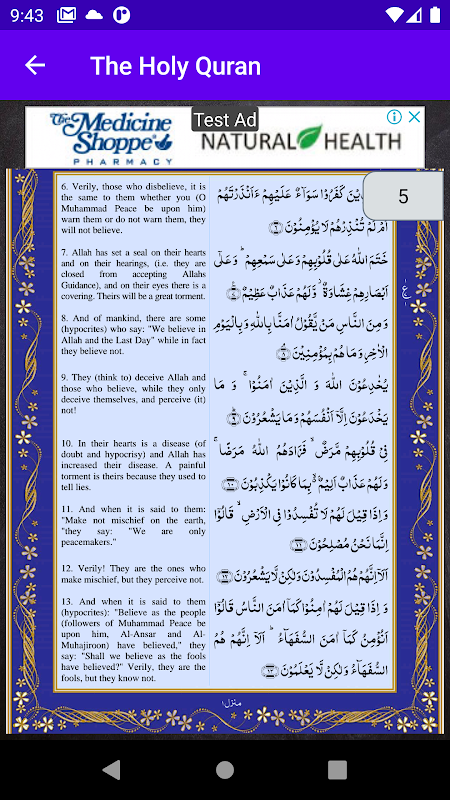 9:43
The Holy Quran
The Medicine
Shoppe
PHARMACY
Test Ad
NATURAL HEALTH
5
6. Verily, those who disbelieve, it is
the same to them whether you (O
Muhammad Peace be upon him)
warn them or do not warn them, they
will not believe.
7. Allah has set a seal on their hearts
and on their hearings, (i.e. they are
closed from accepting Allahs
Guidance), and on their eyes there is a
covering. Theirs will be a great torment.
8. And of mankind, there are some
(hypocrites) who say: "We believe in
Allah and the Last Day" while in fact
they believe not.
9. They (think to) deceive Allah and
those who believe, while they only
deceive themselves, and perceive (it)
not!
10. In their hearts is a disease (of
doubt and hypocrisy) and Allah has
increased their disease. A painful
torment is theirs because they used to
tell lies.
11. And when it is said to them:
"Make not mischief on the earth,
"they say: "We are only
peacemakers."
12. Verily! They are the ones who
make mischief, but they perceive not.
13. And when it is said to them
(hypocrites): "Believe as the people
(followers of Muhammad Peace be
upon him, Al-Ansar and Al-
Muhajiroon) have believed," they
say: "Shall we believe as the fools
have believed?" Verily, they are the
fools, but they know not.
كَفَرُوْا سَوَآءٌ عَلَيْهِمْ ءَاَنْذَرْتَهُمْ
اَمْ لَمْ تُنْذِرْهُمْ لَا يُؤْمِنُوْنَ ۝٦
خَتَمَ اللّٰهُ عَلٰى قُلُوْبِهِمْ وَعَلٰى سَمْعِهِمْ ؕ وَعَلٰٓى
اَبْصَارِهِمْ غِشَاوَةٌ ؗ وَّلَهُمْ عَذَابٌ عَظِيْمٌ ۝٧
ع
وَمِنَ النَّاسِ مَنْ يَّقُوْلُ اٰمَنَّا بِاللّٰهِ وَبِالْيَوْمِ
الْاٰخِرِ وَمَا هُمْ بِمُؤْمِنِيْنَ ۝٨
يُخٰدِعُوْنَ اللّٰهَ وَ الَّذِيْنَ اٰمَنُوْا ۚ وَ مَا
يَخْدَعُوْنَ اِلَّاۤ اَنْفُسَهُمْ وَمَا يَشْعُرُوْنَ ۝٩
فِيْ قُلُوْبِهِمْ مَّرَضٌ ۙ فَزَادَهُمُ اللّٰهُ مَرَضًا ۚ
وَلَهُمْ عَذَابٌ اَلِيْمٌۢ ۙ بِمَا كَانُوْا يَكْذِبُوْنَ ۝١٠
وَاِذَا قِيْلَ لَهُمْ لَا تُفْسِدُوْا فِى الْاَرْضِ ۙ قَالُوْٓا
اِنَّمَا نَحْنُ مُصْلِحُوْنَ ۝١١
اَلَاۤ اِنَّهُمْ هُمُ الْمُفْسِدُوْنَ وَلٰكِنْ لَّا يَشْعُرُوْنَ ۝١٢
وَ اِذَا قِيْلَ لَهُمْ اٰمِنُوْا كَمَاۤ اٰمَنَ النَّاسُ قَالُوْٓا
اَنُؤْمِنُ كَمَاۤ اٰمَنَ السُّفَهَآءُ ؕ اَلَاۤ اِنَّهُمْ هُمُ
السُّفَهَآءُ وَلٰكِنْ لَّا يَعْلَمُوْنَ ۝١٣
منزل ١